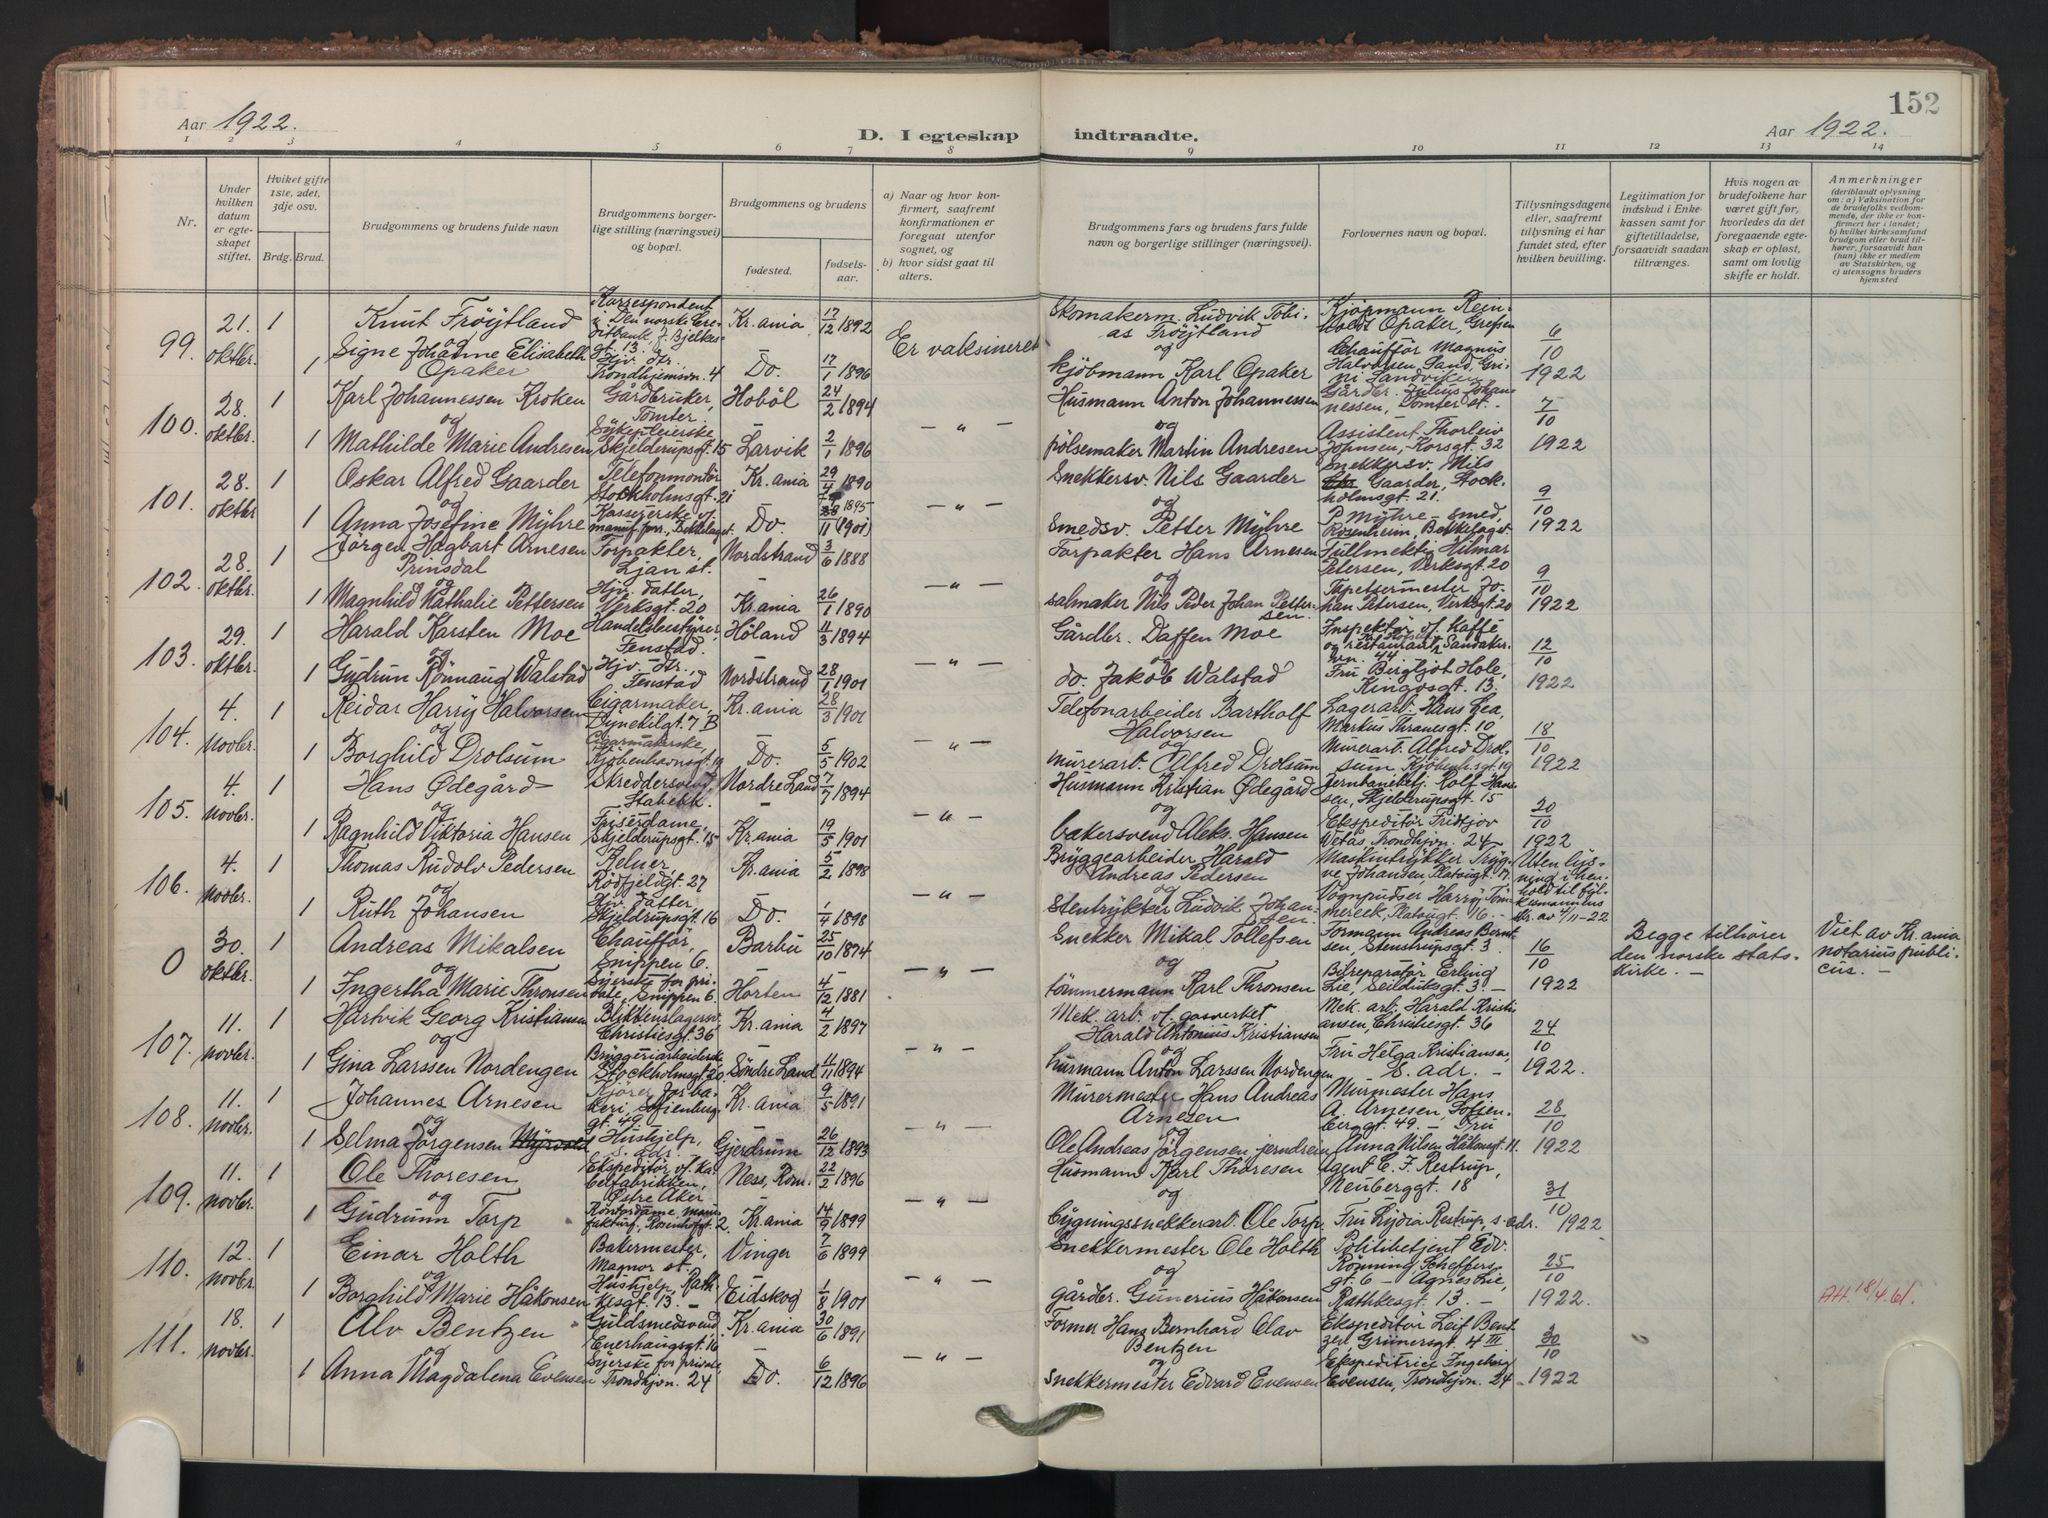 152
Aar 1922.
D. I egteskap indtraadte.
Aar 1922.
1 2 3 4 5 6 7 8 9 10 11 12 13 14
Nr.
Under hvilken datum er egteskapet stiftet.
Hviket gifte 1ste, 2det, 3dje osv.
Brdg. Brud.
Brudgommens og brudens fulde navn
Brudgommens borgerlige stilling (næringsvei) og bopæl.
Brudgommens og brudens
fødested.
fødselsaar.
a) Naar og hvor konfirmert, saafremt konfirmationen er foregaat utenfor sognet, og
b) hvor sidst gaat til alters.
Brudgommens fars og brudens fars fulde navn og borgerlige stillinger (næringsvei).
Forlovernes navn og bopæl.
Tillysningsdagene eller, saafremt tillysning ei har fundet sted, efter hvilken bevilling.
Legitimation for indskud i Enkekassen samt for giftetilladelse, forsaavidt saadan tiltrænges.
Hvis nogen av brudefolkene har været gift før, hvorledes da det foregaaende egteskap er opløst, samt om lovlig skifte er holdt.
Anmerkninger
(deriblandt oplysning om: a) Vaksination for de brudefolks vedkommende, der ikke er konfirmert her i landet; b) hvilket kirkesamfund brudgom eller brud tilhører, forsaavidt han (hun) ikke er medlem av Statskirken, og c) utensogns bruders hjemsted
99. 21. oktbr. 1 Knut Fröytland Korrespondent i Den norske Creditbank, J. Bjelkesgt. 13. Kr.ania 17/12 1892 Er vaksineret Skomakerm. Ludvik Tobias Fröytland Kjöpmann Reinholdt Opaker, Grefsen 6/10 1922
og
1 Signe Johanne Elisabeth Opaker Hjv. dtr. Trondhjemsvn. 4 Do. 17/1 1896 kjöbmann Karl Opaker Chaufför Magnus Halvorsen, Sand, Grini, Sandviken
100. 28. oktbr. 1 Karl Johannessen Kroken Gårdbruker, Tomter Hoböl 24/2 1894 — " — Husmann Anton Johannessen Gårdbr. Julius Johannessen, Tomter st. 7/10 1922
og
1 Mathilde Marie Andresen Sykepleierske, Skjelderupsgt. 15 Larvik 2/1 1896 pölsemaker Martin Andresen Assistent Thorleiv Johnsen, Korsgt. 32
101. 28. oktbr 1 Oskar Alfred Gaarder Telefonmontör Stockholmsgt. 21 Kr.ania 29/4 1890 — " — Snekkersv. Nils Gaarder Snekkersv. Nils Gaarder, Stockholmsgt. 21. 9/10 1922
og
1 Anna Josefine Myhre Kassererske v. manuf. forr., Bekkelaget. Do. 1895 11 (1901) Smedsv. Petter Myhre P. Myhre - smed, Rosenheim, Bekkelaget
102. 28. oktbr. 1 Jörgen Hagbart Arnesen Prinsdal Forpakter, Ljan st. Nordstrand 3/6 1888 — " — Forpakter Hans Arnesen Fullmektig Hilmar Petersen, Verksgt. 20 9/10 1922
og
1 Magnhild Nathalie Pettersen Hjv. datter, Verksgt. 20 Kr.ania 26/1 1890 salmaker Nils Peder Johan Pettersen Tapetsermester Johan Petersen, Verksgt. 20
103. 29. oktbr. 1 Harald Karsten Moe Handelsbestyrer, Fenstad. Höland 11/3 1894 — " — Gårdbr. Daffen Moe Inspektör v. kaffe og restaurant, Sandakervn. 44 12/10 1922
og
1 Gudrun Rönnaug Walstad Hjv. dtr., Fenstad Nordstrand 28/1 1901 do. Jakob Walstad Fru Bergljot Hole, Kingosgt. 13.
104. 4. novbr. 1 Reidar Harry Halvorsen Cigarmaker, Dynekilgt. 7 B Kr.ania 28/3 1901 — " — Telefonarbeider Bartholf Halvorsen Lagerarb. Hans Lea, Markus Thranesgt. 10 18/10 1922
og
1 Borghild Drolsum Cigarmakerske, Kjöbenhavnsgt. 19 Do. 5/5 1902 murerarb. Alfred Drolsum Murerarb. Alfred Drolsum Kjöbenh.sgt. 19
105. 4. novbr. 1 Hans Ødegård Skreddersvend, Stabekk. Nordre Land 7/7 1894 — " — Husmann Kristian Ødegård Jernbanebetj. Rolf Hansen, Skjelderupsgt. 15 20/10 1922
og
1 Ragnhild Viktoria Hansen Friserdame, Skjelderupsgt. 15 Kr.ania 19/5 1901 bakersvend Aleks. Hansen Ekspeditör Fridtjov Wetås, Trondhjvn. 24
106. 4. novbr. 1 Thomas Rudolv Pedersen Kelner, Rödfjeldgt. 27 Kr.ania 5/2 1898 — " — Bryggearbeider Harald Andreas Pedersen Maskintrykker Trygve Johansen, Platougt. 17. Uten lysning i henhold til fylkesmannens skr. av 4/11-22
og
1 Ruth Johansen Hjv. datter, Skjelderupsgt. 16 Do. 1/4 1898 Stentrykker Ludvik Johansen Vognpudser Harry Tömmereek, Platougt. 16.
0 30. oktbr. 1 Andreas Mikalsen Chaufför, Snippen 6. Barbu 25/10 1874 — " — Snekker Mikal Tollefsen Formann Andreas Berntsen, Stenstrupsgt. 3 16/10 1922 Begge tilhörer den norske statskirke. — Viet av Kr.ania notarius publicus. —
og
1 Ingertha Marie Thronsen Syerske for private, Snippen 6 Horten 4/12 1881 tömmermann Karl Thronsen Bilreparatör Erling Lie, Seilduksgt. 3. —
107. 11. novbr. 1 Hartvik Georg Kristiansen Blikkenslagersv. Christiesgt. 36 Kr.ania 4/2 1897 — " — Mek. arb. v. gasverket Harald Antonius Kristiansen Mek. arb. Harald Kristiansen, Christiesgt. 36 24/10 1922.
og
1 Gina Larssen Nordengen Bryggeriarbeiderske Stockholmsgt. 20. Söndre Land 11/11 1894 husmann Anton Larssen Nordengen Fru Helga Kristiansen, S. adr. —
108. 11. novbr. 1 Johannes Arnesen Kjörer for bakeri, Sofienberggt. 49 — Kr.ania 9/5 1891 — " — Murermester Hans Andreas Arnesen Murmester Hans A. Arnesen, Sofienberggt. 49. — Fru 28/10 1922
og
1 Selma Jörgensen Myrvold Hushjelp, S. adr. Gjerdrum 26/12 1893 Ole Andreas Jörgensen, jerndreier Anna Nilsen Håkonsgt. 11.
109. 11. novbr. 1 Ole Thoresen Ekspeditör v. Kabelfabrikken, Østre Aker Ness, Rom. 22/2 1896 — " — Husmann Karl Thoresen Agent C. F. Restrup, Neuberggt. 18 31/10 1922
og
1 Gudrunn Torp Kontordame, manufaktur, Rosenhofgt. 2. Kr.ania 14/9 1899 bygningssnekkerarb. Ole Torp. Fru Lydia Restrup, s. adr.
110. 12. novbr. 1 Einar Holth Bakermester, Magnor st. Vinger 7/6 1899 — " — Snekkermester Ole Holth Politibetjent Edv. Rönning Scheffersgt. 6 — Agnes Lie, 25/10 1922.
og
1 Borghild Marie Håkonsen Hushjelp, Rathkesgt. 13. — Eidskog 1/8 1901 gårdbr. Gunerius Håkonsen Rathkesgt. 13. — AH. 18/4 61.
111. 18. novbr. 1 Alv Bentzen Guldsmedsvend, Enerhaugsgt. 16 Kr.ania 30/6 1891 — " — Former Hans Bernhard Olav Bentzen Ekspeditör Leif Bentzen, Grünersgt. 4 III 30/10 1922
og
1 Anna Magdalena Evensen Syerske for private, Trondhjvn. 24 Do. 6/12 1896 Snekkermester Edvard Evensen Ekspeditrice Ingeborg Evensen, Trondhjvn. 24